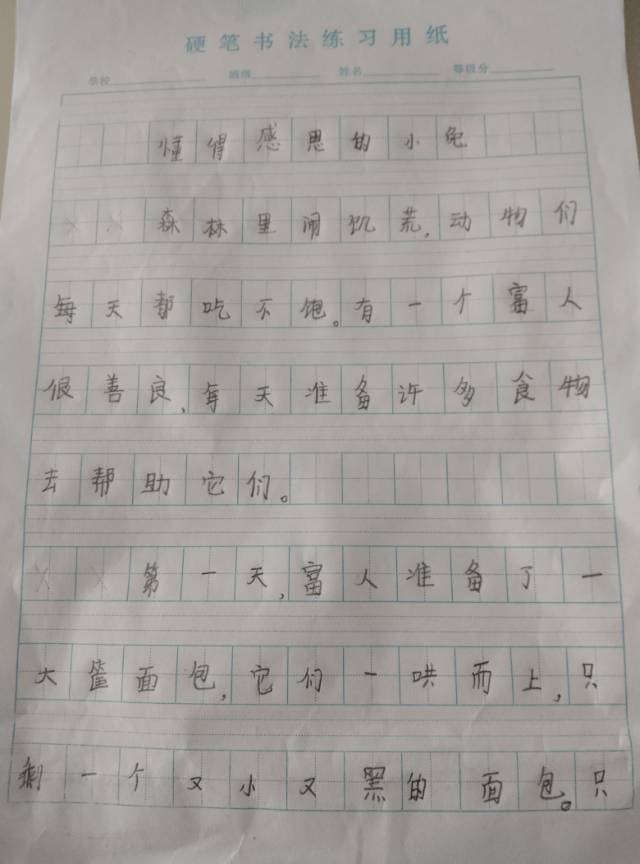 硬笔书法练习用纸
学校 班级 姓名 等级分
懂得感恩的小兔
森林里闹饥荒,动物们
每天都吃不饱。有一个富人
很善良,每天准备许多食物
去帮助它们。
第一天,富人准备了一
大筐面包,它们一哄而上,只
剩一个又小又黑的面包。只